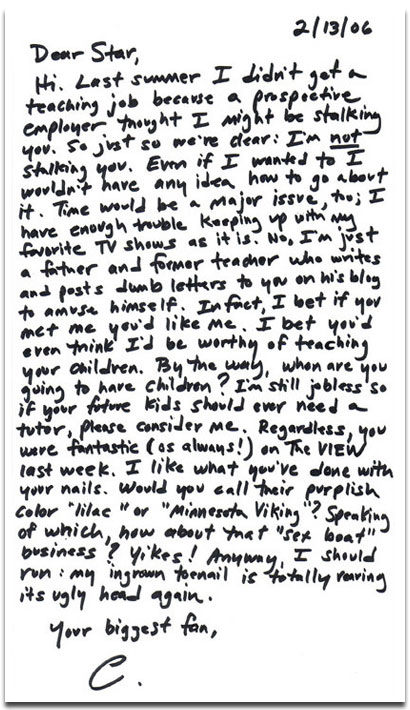 2/13/06
Dear Star,
Hi. Last summer I didn't get a
teaching job because a prospective
employer thought I might be stalking
you. So just so we're clear: I'm not
stalking you. Even if I wanted to I
wouldn't have any idea how to go about
it. Time would be a major issue, too; I
have enough trouble keeping up with my
favorite TV shows as it is. No, I'm just
a father and former teacher who writes
and posts dumb letters to you on his blog
to amuse himself. In fact, I bet if you
met me you'd like me. I bet you'd
even think I'd be worthy of teaching
your children. By the way, when are you
going to have children? I'm still jobless so
if your future kids should ever need a
tutor, please consider me. Regardless, you
were fantastic (as always!) on The VIEW
last week. I like what you've done with
your nails. Would you call their purplish
color "lilac" or "Minnesota Viking"? Speaking
of which, how about that "sex boat"
business? Yikes! Anyway, I should
run: my ingrown toenail is totally rearing
its ugly head again.
Your biggest fan,
C.